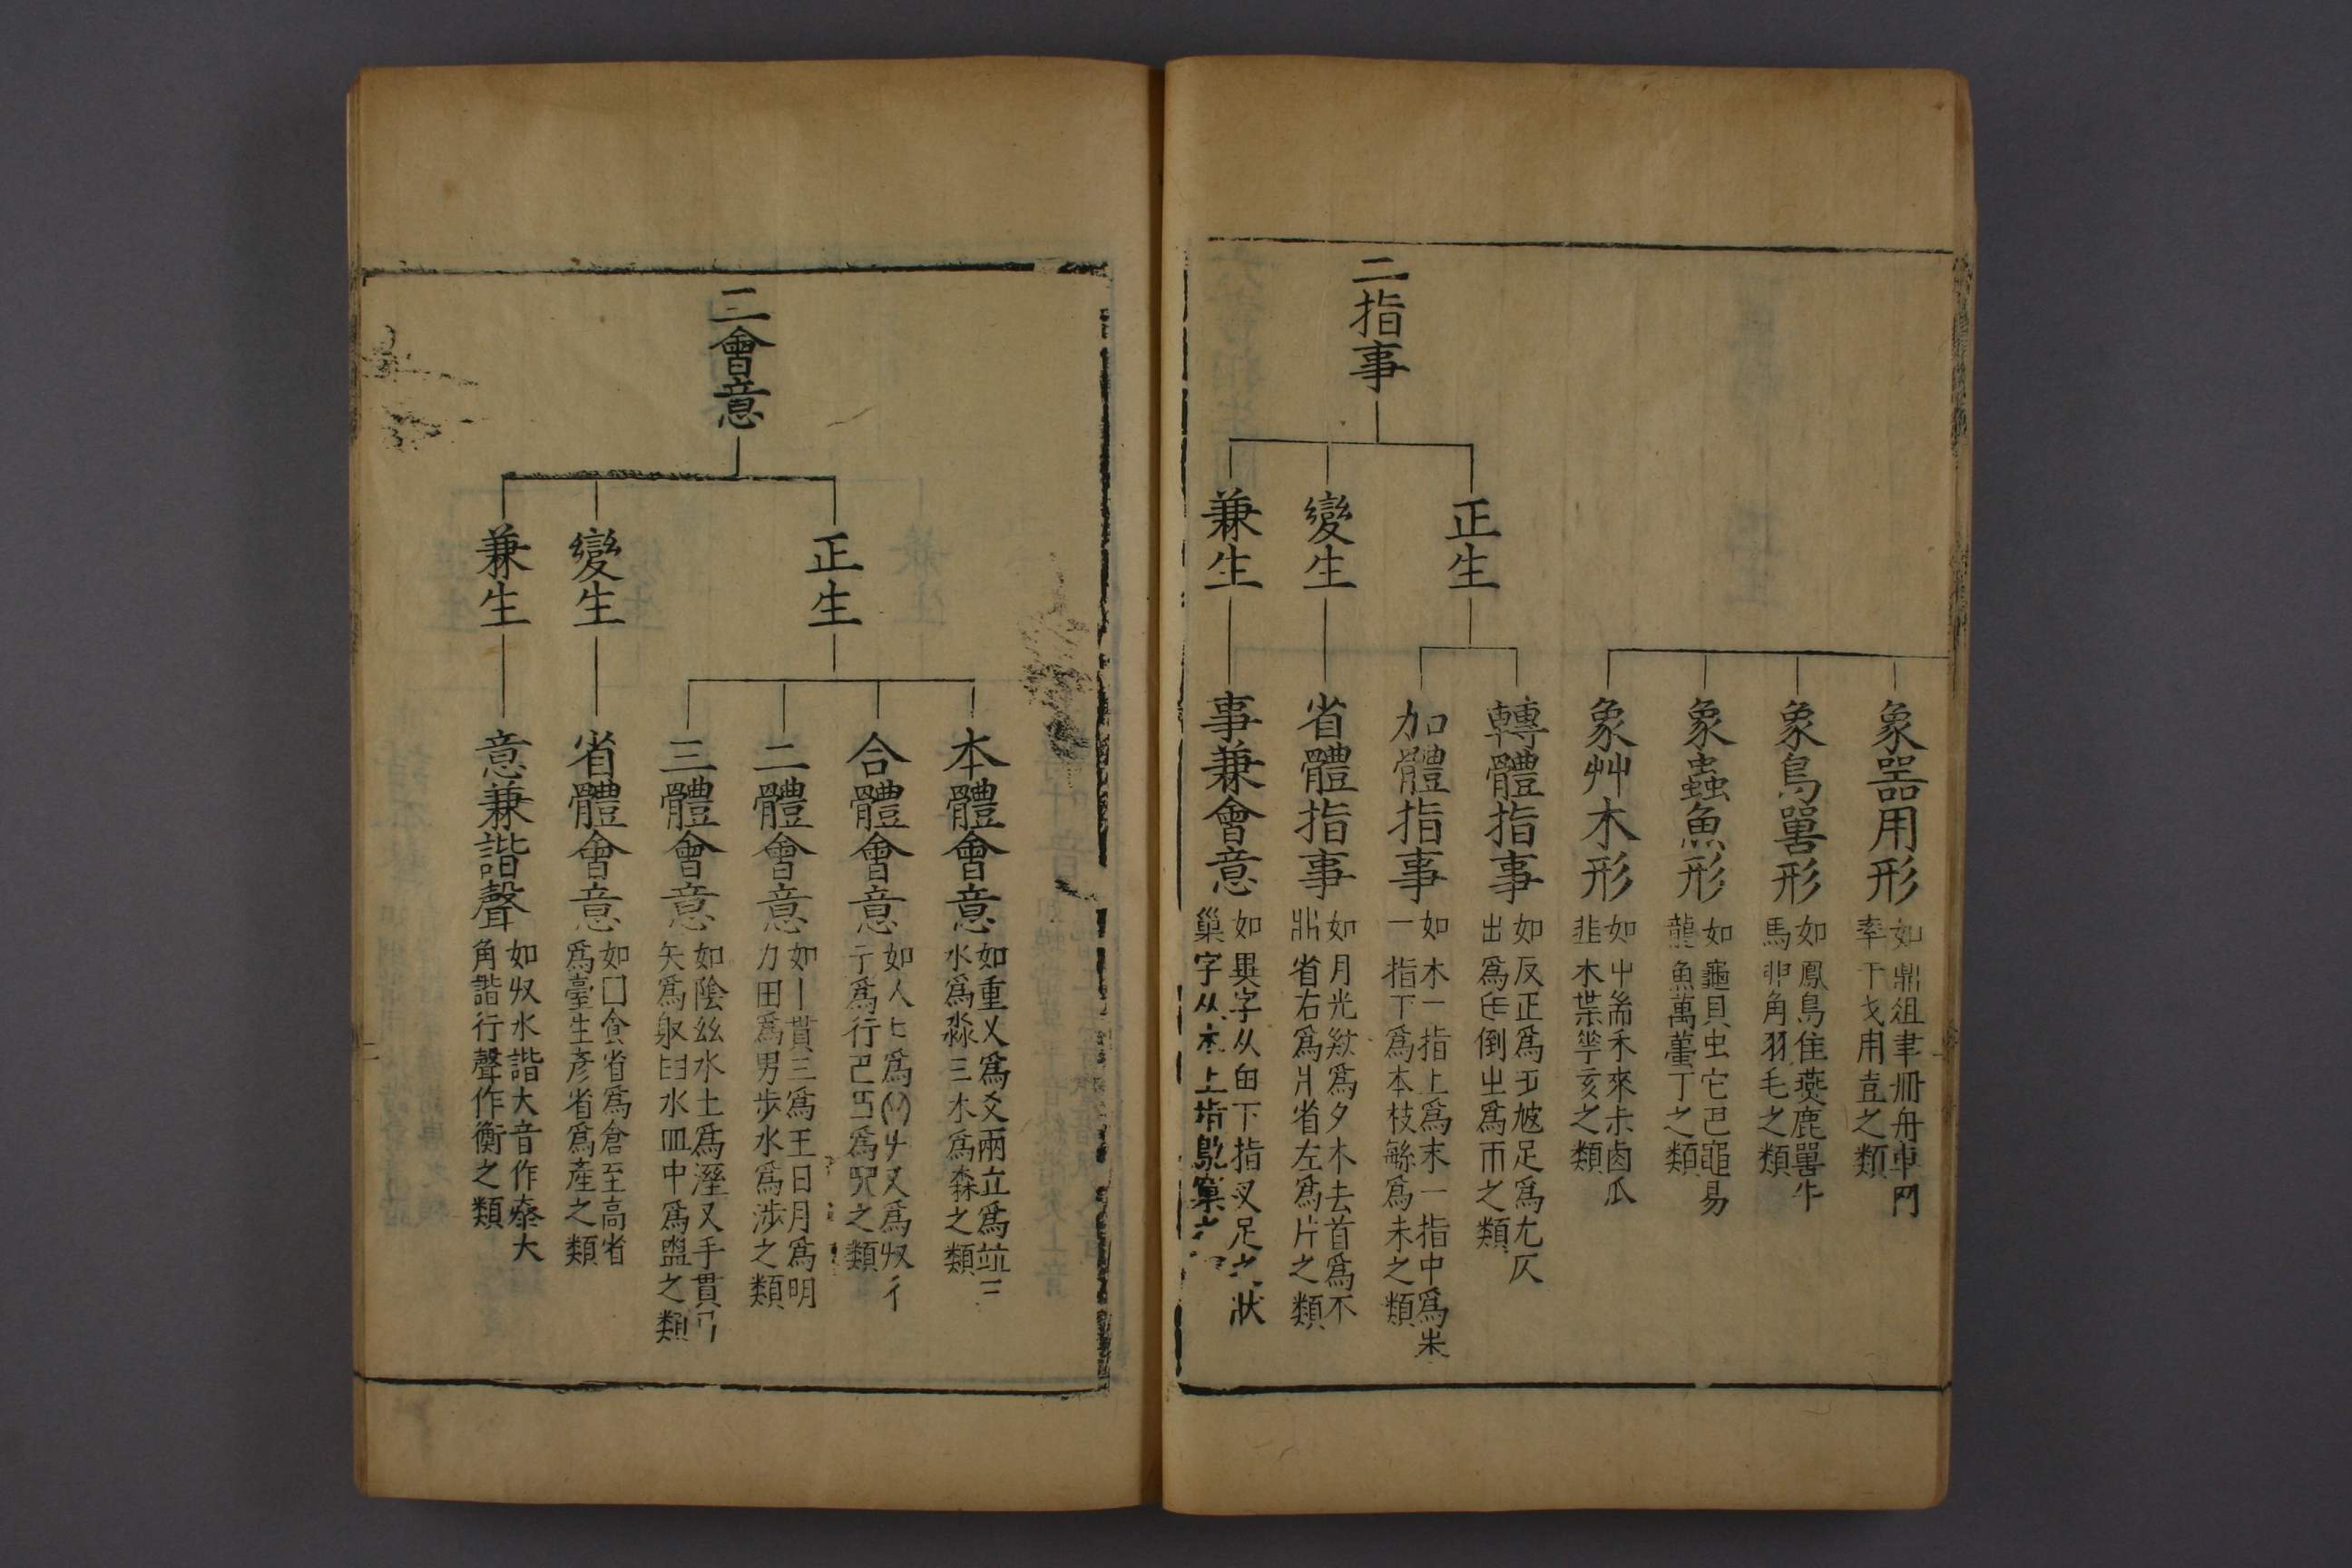 象器用形
如鼎俎聿冊舟車門
率干戈用壴之類
象鳥嘼形
如鳳鳥隹燕鹿嘼牛
馬丱角羽毛之類
象蟲魚形
如龜貝虫它巴黽易
龍魚萬丁之類
象艸木形
如屮耑禾來尗鹵瓜
韭木枼亥之類
二指事
正生
轉體指事
如反正為足為尢仄
出為倒㞢為帀之類
加體指事
如木一指上為末一指中為朱
一指下為本枝為未之類
變生
省體指事
如月光為夕木去首為不
省右為爿省左為片之類
兼生
事兼會意
如畢字从田下指足之狀
巢字从木上指巢之
三會意
正生
本體會意
如重乂為爻兩立為竝三
水為淼三木為森之類
合體會意
如人匕為又為彳
亍為行為之類
二體會意
如丨貫三為王日月為明
力田為男步水為涉之類
三體會意
如陰絲水土為溼又手貫
矢為臼水皿中為盥之類
變生
省體會意
如囗食省為倉至高省
為臺生彥省為產之類
兼生
意兼諧聲
如水諧大音作泰大
角諧行聲作衡之類